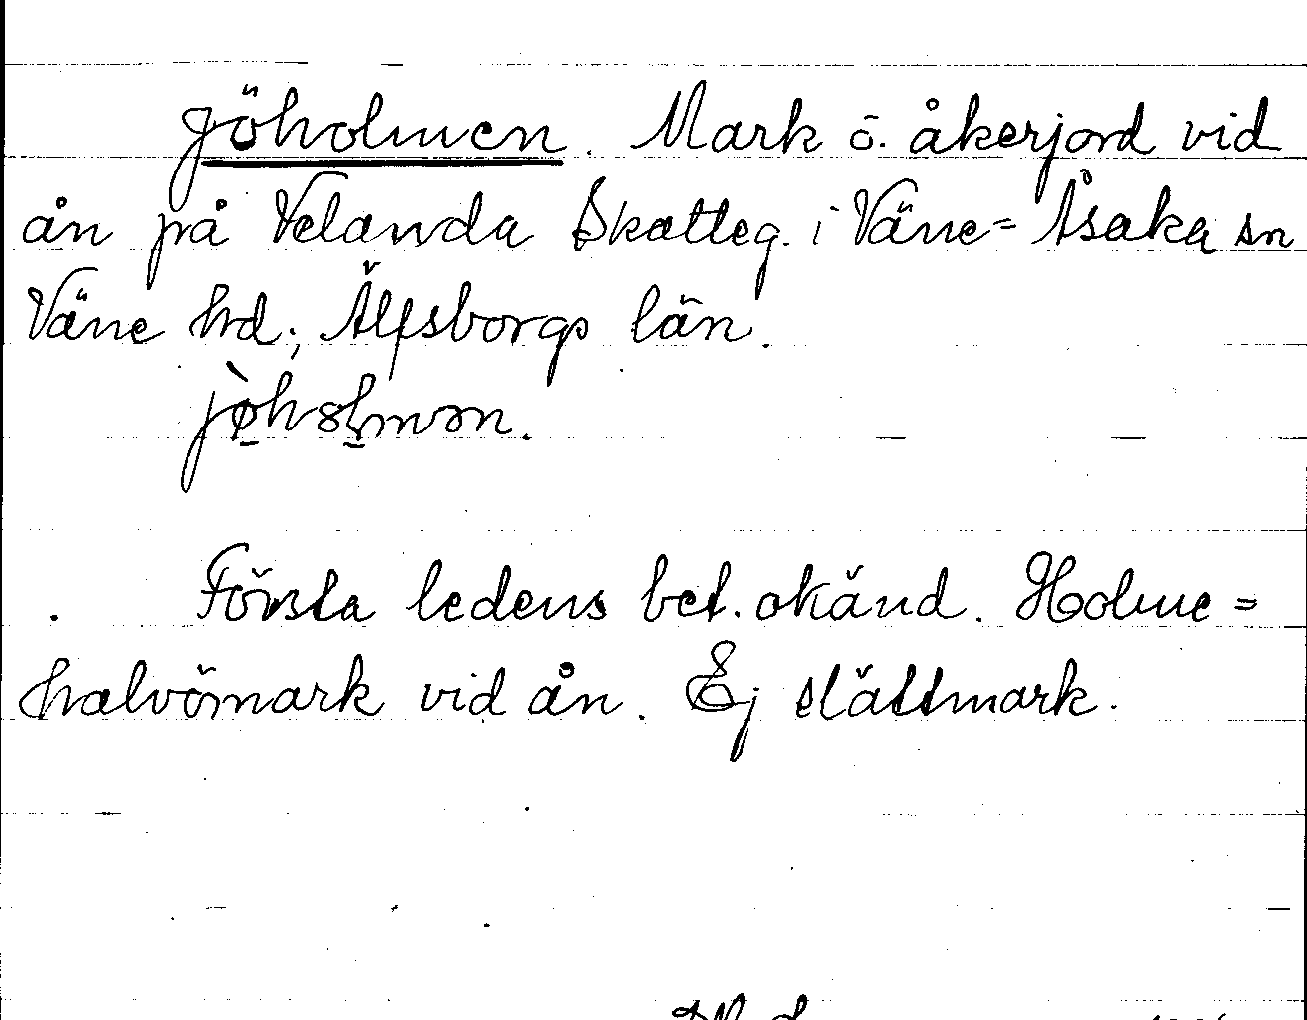 Jöholmen. Mark o. åkerjord vid
ån på Velanda Skatteg. i Väne-Åsaka sn
Väne hd; Älfsborgs län.
jø̀hol̥mən.
Första ledens bet. okänd. Holme =
halvömark vid ån. Ej slättmark.